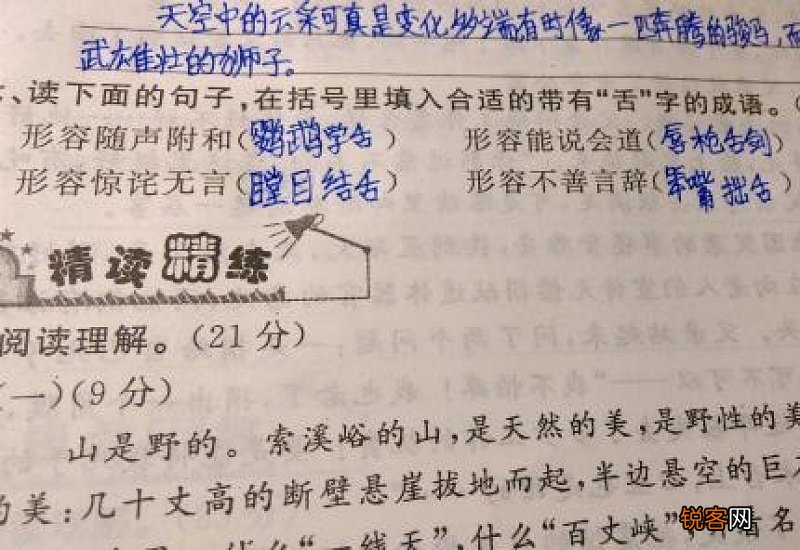 天空中的云采可真是变化多端,有时像一匹奔腾的骏马,而
武雄壮的狮子。
、读下面的句子,在括号里填入合适的带有“舌”字的成语。(
形容随声附和(鹦鹉学舌) 形容能说会道(唇枪舌剑)
形容惊诧无言(瞠目结舌) 形容不善言辞(笨嘴拙舌)
精读精练
阅读理解。(21分)
(一)(9分)
山是野的。索溪峪的山,是天然的美,是野性的美
的美:几十丈高的断壁悬崖拔地而起,半边悬空的巨石
什么“一线天”,什么“百丈峡”,
锐客网